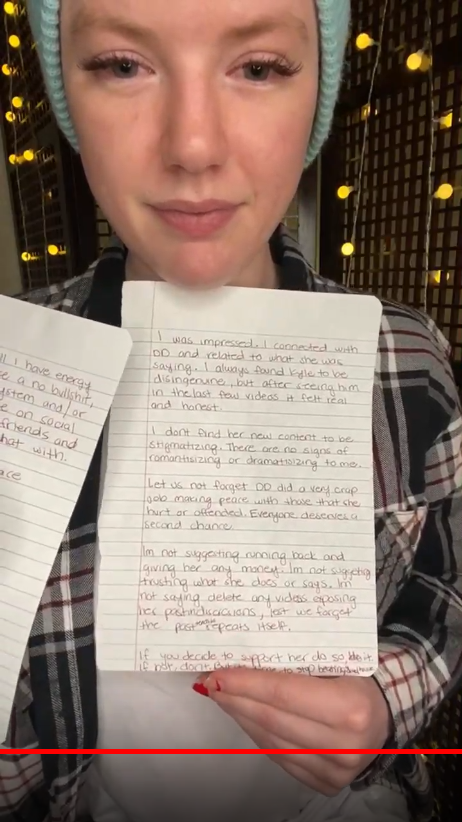 ll I have energy
e a no bullshit,
ystem and/or
e on social
friends and
hat with.
ace
I was impressed. I connected with
DD and related to what she was
saying. I always found Kyle to be
disingenuine, but after seeing him
in the last few videos it felt real
and honest.
I dont find her new content to be
stigmatizing. There are no signs of
romantisizing or dramatisizing to me.
Let us not forget DD did a very crap
job making peace with those that she
hurt or offended. Everyone deserves a
second chance.
Im not suggesting running back and
giving her any money. Im not suggesting
trusting what she does or says. Im
not saying delete any videos exposing
her past indiscrissions, lest we forget
the past repeats itself.
If you decide to support her do so,
If not, dont. to stop beating